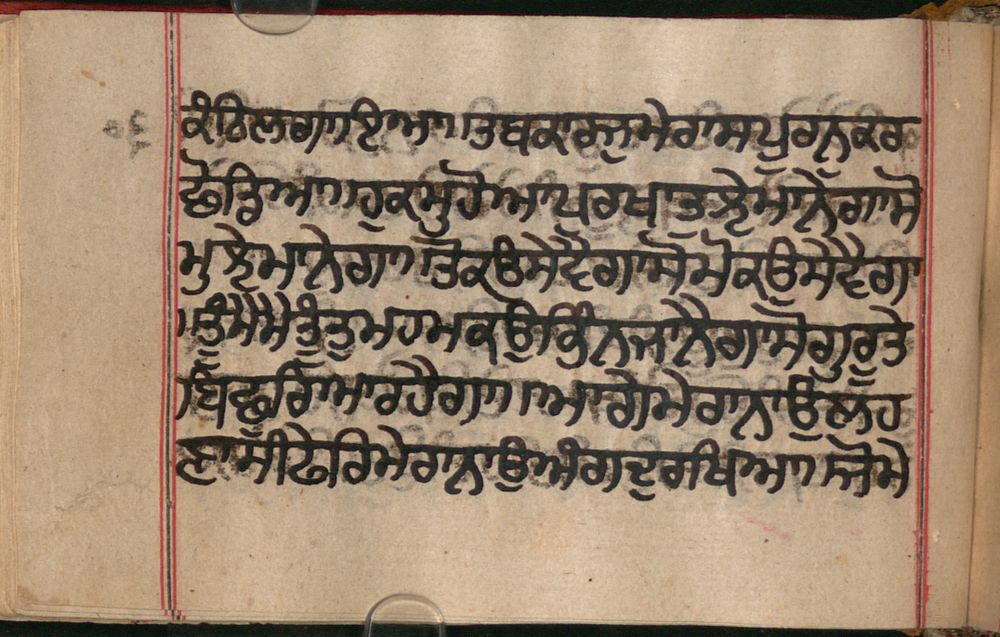 ਕੰਠਿਲਗਾਇਆ।ਤਬਕਾਰਜੁਮੇਰਾਸਪੂਰਨੁਕਰ
ਛੋਡਿਆ।ਹੁਕਮੁਹੋਆਪਰਖਾਤੁਝੇਮਾਨੇਗਾਸੋ
ਮੁਝੇਮਾਨੇਗਾ।ਤੇਕਉਸੇਵੈਗਾਸੋਮੋਕਉਸੇਵੈਗਾ
।ਤੂੰਮੈਮੈਤੂੰਤੁਮਹਮਕਉਭਿੰਨਜਾਨੈਗਾਸੋਗੁਰੂਤੇ
ਬਿਛੁਰਿਆਰਹੈਗਾ।ਆਗੇਮੇਰਾਨਾਉਲਹ
ਣਾਸੀਫੇਰਿਮੇਰਾਨਾਉਅੰਗਦੁਰਖਿਆ।ਜੋਮੇ